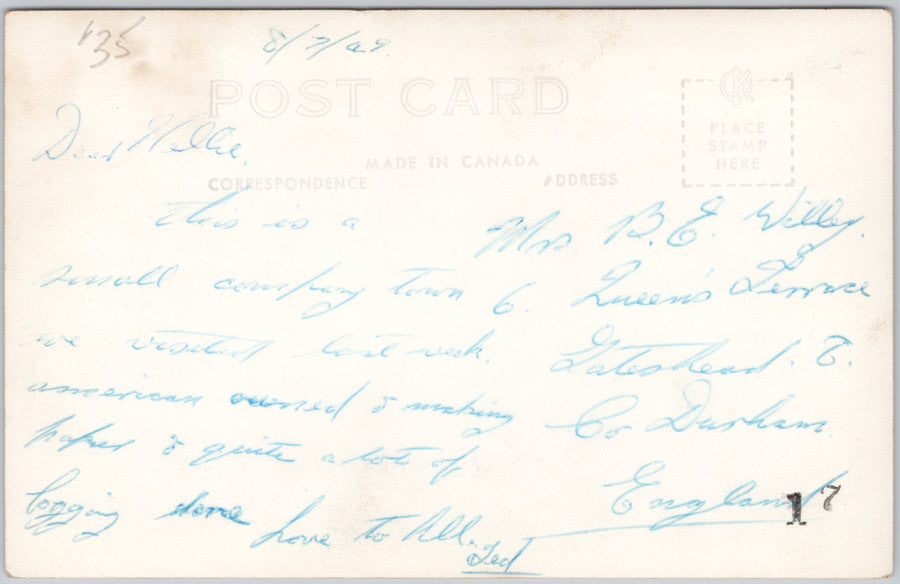 $35
8/7/49.
POST CARD
CK
PLACE
STAMP
HERE
MADE IN CANADA
CORRESPONDENCE
ADDRESS
Dear Nellie,
this is a
small company town
we visited last week.
american owned & making
paper & quite a lot of
logging done
Love to All.
Ted
Mrs. B. E. Willey.
6. Queen's Terrace
Gateshead. 8.
Co Durham.
England
17